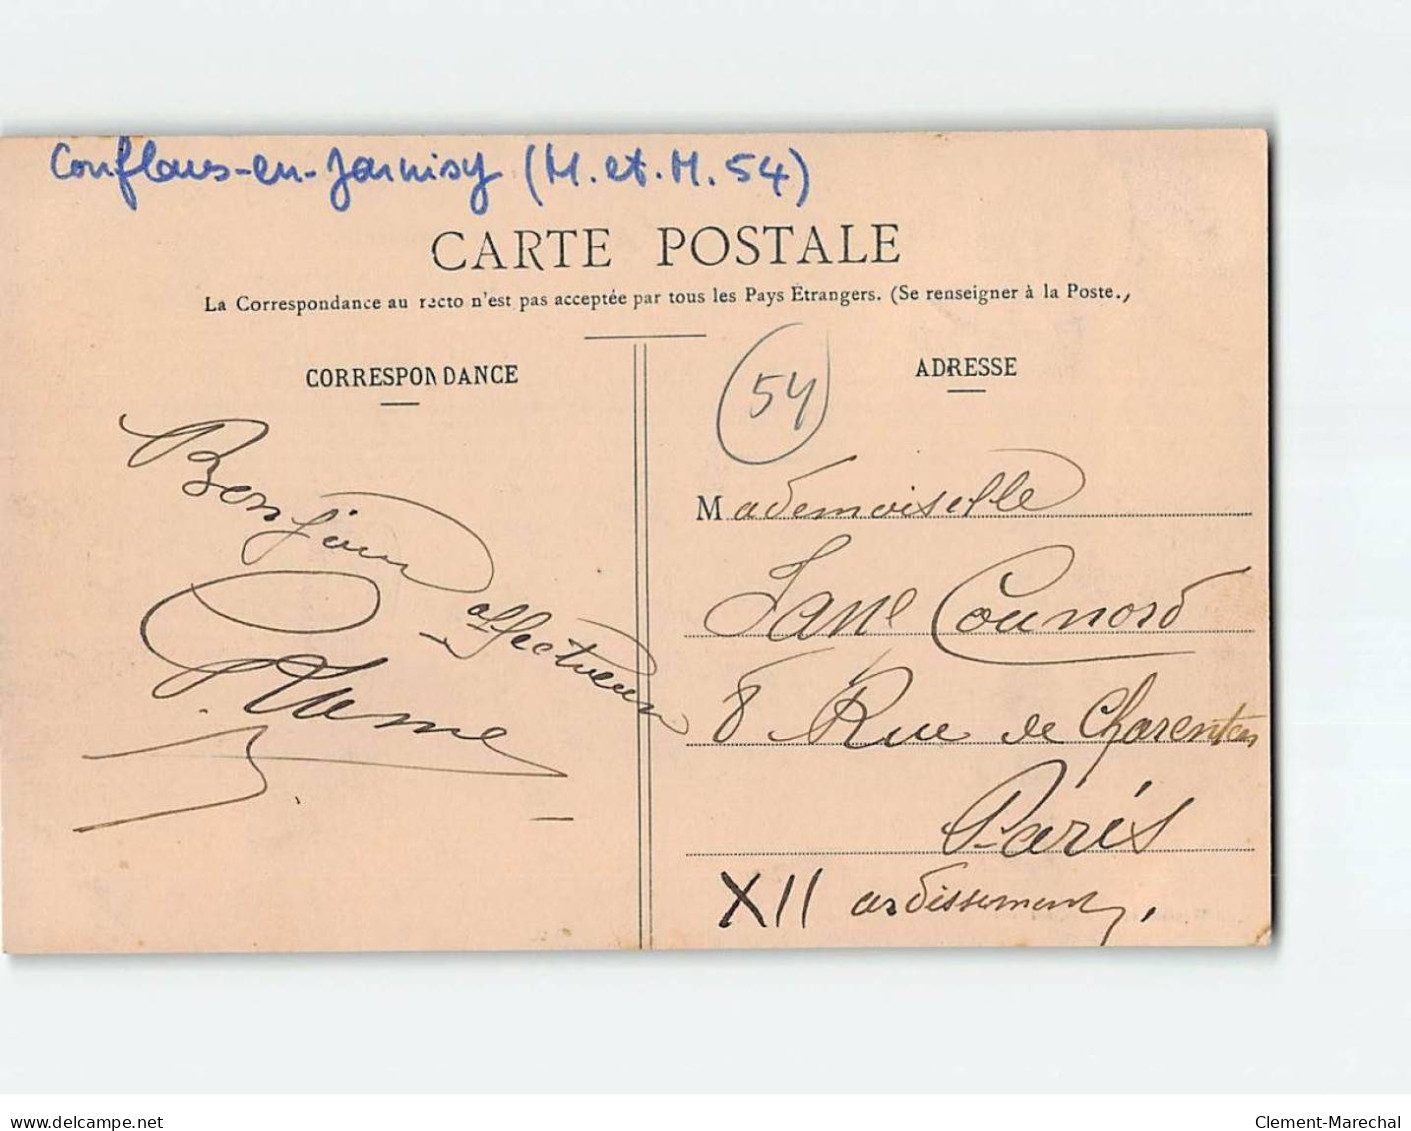 Conflans-en-Jarnisy (M. et. M. 54)
CARTE POSTALE
La Correspondance au recto n'est pas acceptée par tous les Pays Étrangers. (Se renseigner à la Poste.)
CORRESPONDANCE
Bonjour
affectueux
ADRESSE
54
Mademoiselle
Jane Counord
8 Rue de Charenton
Paris
XII ardissement.
www.delcampe.net
Clement-Marechal